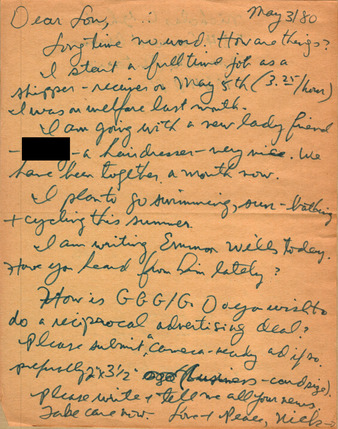 May 3/80
Dear Lon,
Long time no word. How are things?
I start a full time job as a
shipper-receiver on May 8th (3.25/hour)
I was on welfare last month.
I am going with a new lady friend
- - a hairdresser - very nice. We
have been together a month now.
I plan to go swimming, sun-bathing
+ cycling this summer.
I am writing Ernman Wills today.
Have you heard from him lately?
How is GGG/G. Do you wish to
do a reciprocal advertising deal?
Please submit camera-ready ad if so
preferably 2"x3½" (business-card size).
Please write & tell me all your news.
Take care now. Love & Peace,